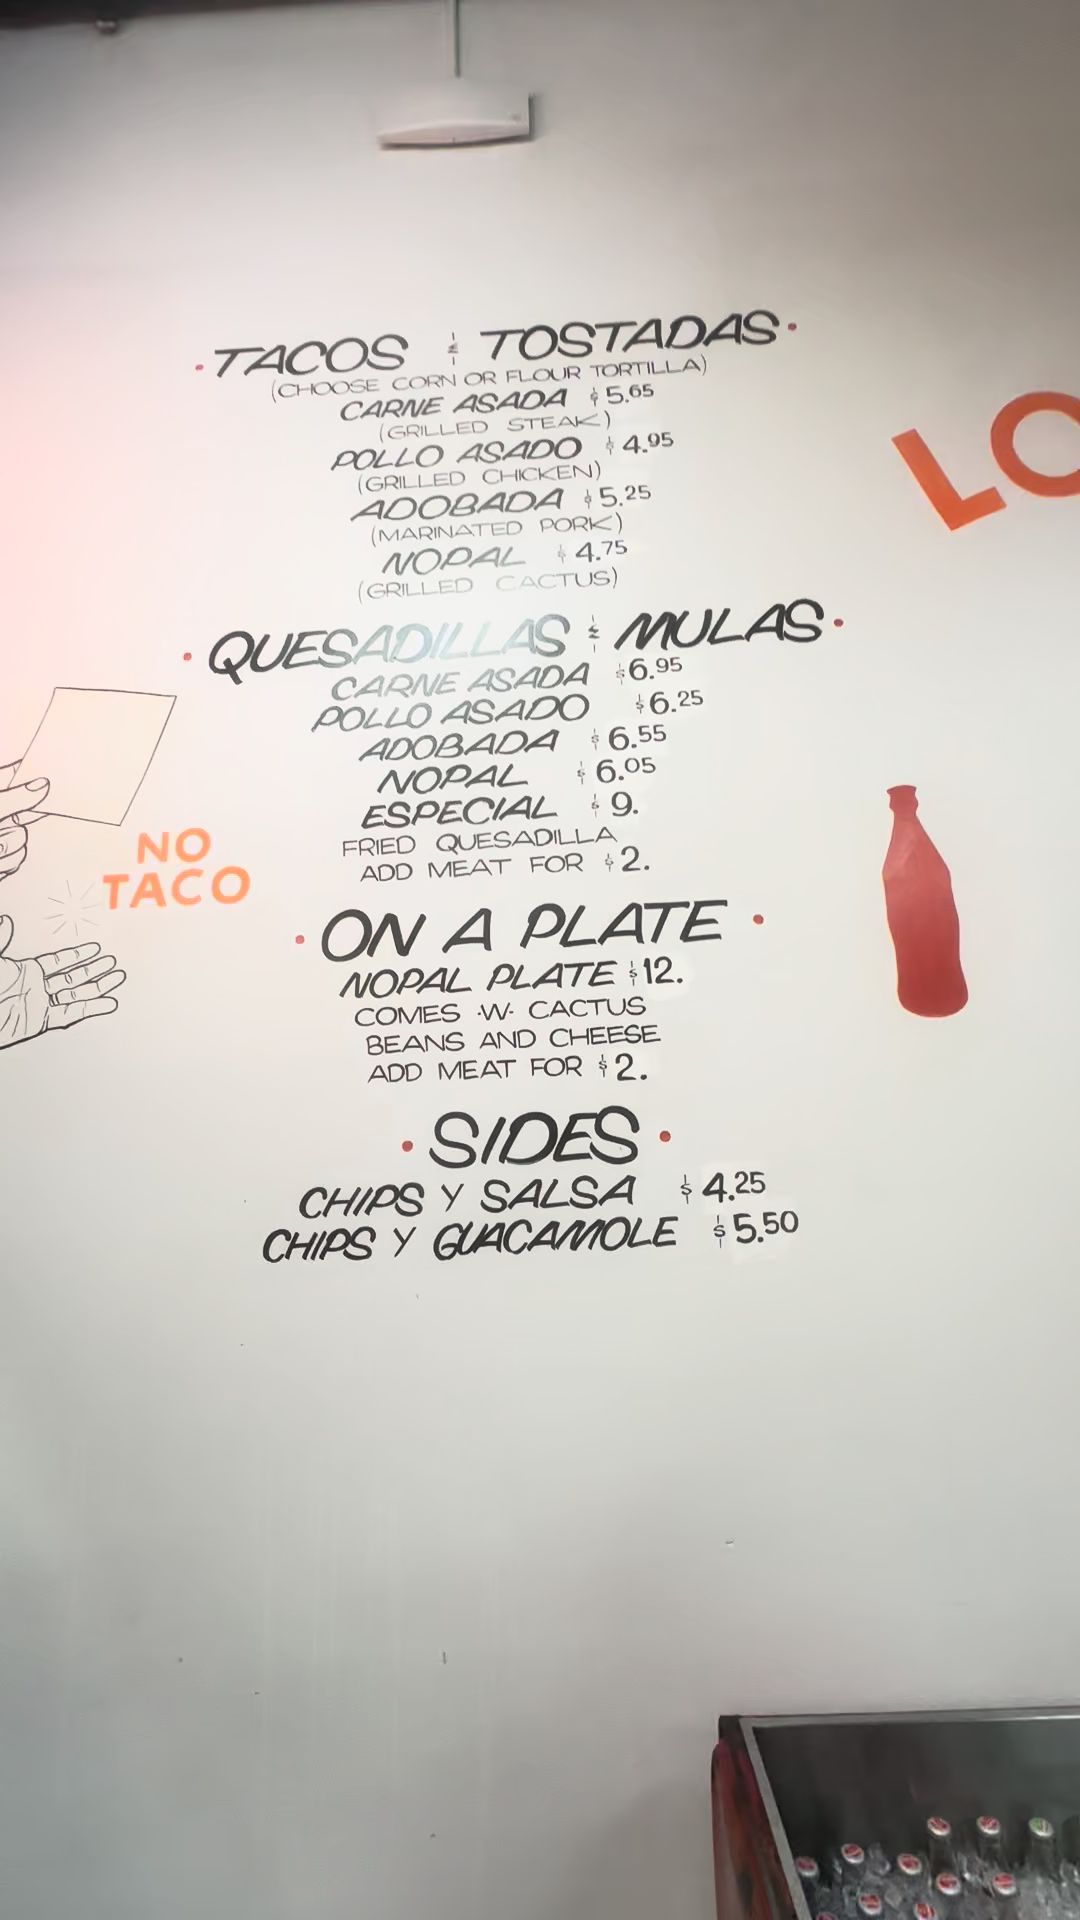 TACOS & TOSTADAS
(CHOOSE CORN OR FLOUR TORTILLA)
CARNE ASADA $5.65
(GRILLED STEAK)
POLLO ASADO $4.95
(GRILLED CHICKEN)
ADOBADA $5.25
(MARINATED PORK)
NOPAL $4.75
(GRILLED CACTUS)
QUESADILLAS & MULAS
CARNE ASADA $6.95
POLLO ASADO $6.25
ADOBADA $6.55
NOPAL $6.05
ESPECIAL $9.
FRIED QUESADILLA
ADD MEAT FOR $2.
ON A PLATE
NOPAL PLATE $12.
COMES -W- CACTUS
BEANS AND CHEESE
ADD MEAT FOR $2.
SIDES
CHIPS Y SALSA $4.25
CHIPS Y GUACAMOLE $5.50
NO
TACO
LO